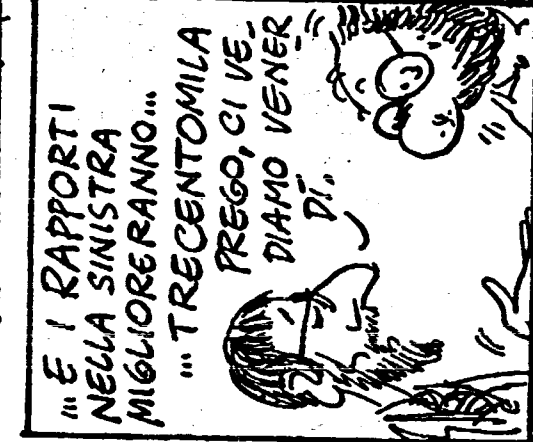 ... E I RAPPORTI
NELLA SINISTRA
MIGLIORERANNO...
... TRECENTOMILA
PREGO, CI VE_
DIAMO VENER
DÌ..